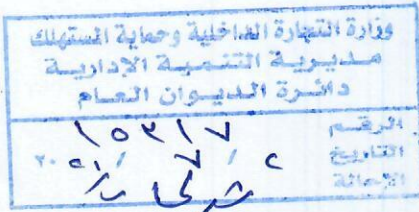 وزارة التجارة الداخلية وحماية المستهلك
مديرية التنمية الإدارية
دائرة الديوان العام
الرقم ١٥٣١٧
التاريخ ٢ / ٧ / ٢٠
الإحالة